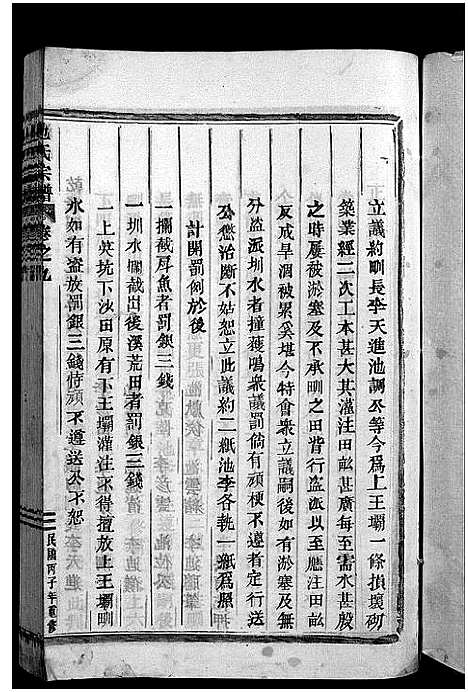 立議約圳長李天進池調公等今爲上王壩一條損壞砌
築業經二次工本甚大其灌注田畝甚廣每至需水甚殷
之時屢被淤塞及不承圳之田皆行盜派以至應注田畝
反成旱涸被累奚堪今特會衆立議嗣後如有淤塞及無
分盜派圳水者撞獲鳴衆議罰倘有頑梗不遵者定行送
公懲治斷不姑恕立此議約二紙池李各執一紙爲照
計開罰例於後
一攔截戽魚者罰銀三錢
一圳水攔截出後溪荒田者罰銀三錢
一上英坑下汝田原有下王壩灌注不得擅放上王壩圳
水如有盜放罰銀三錢恃頑不遵送公不恕
池氏宗譜 卷之九
民國丙子年重修